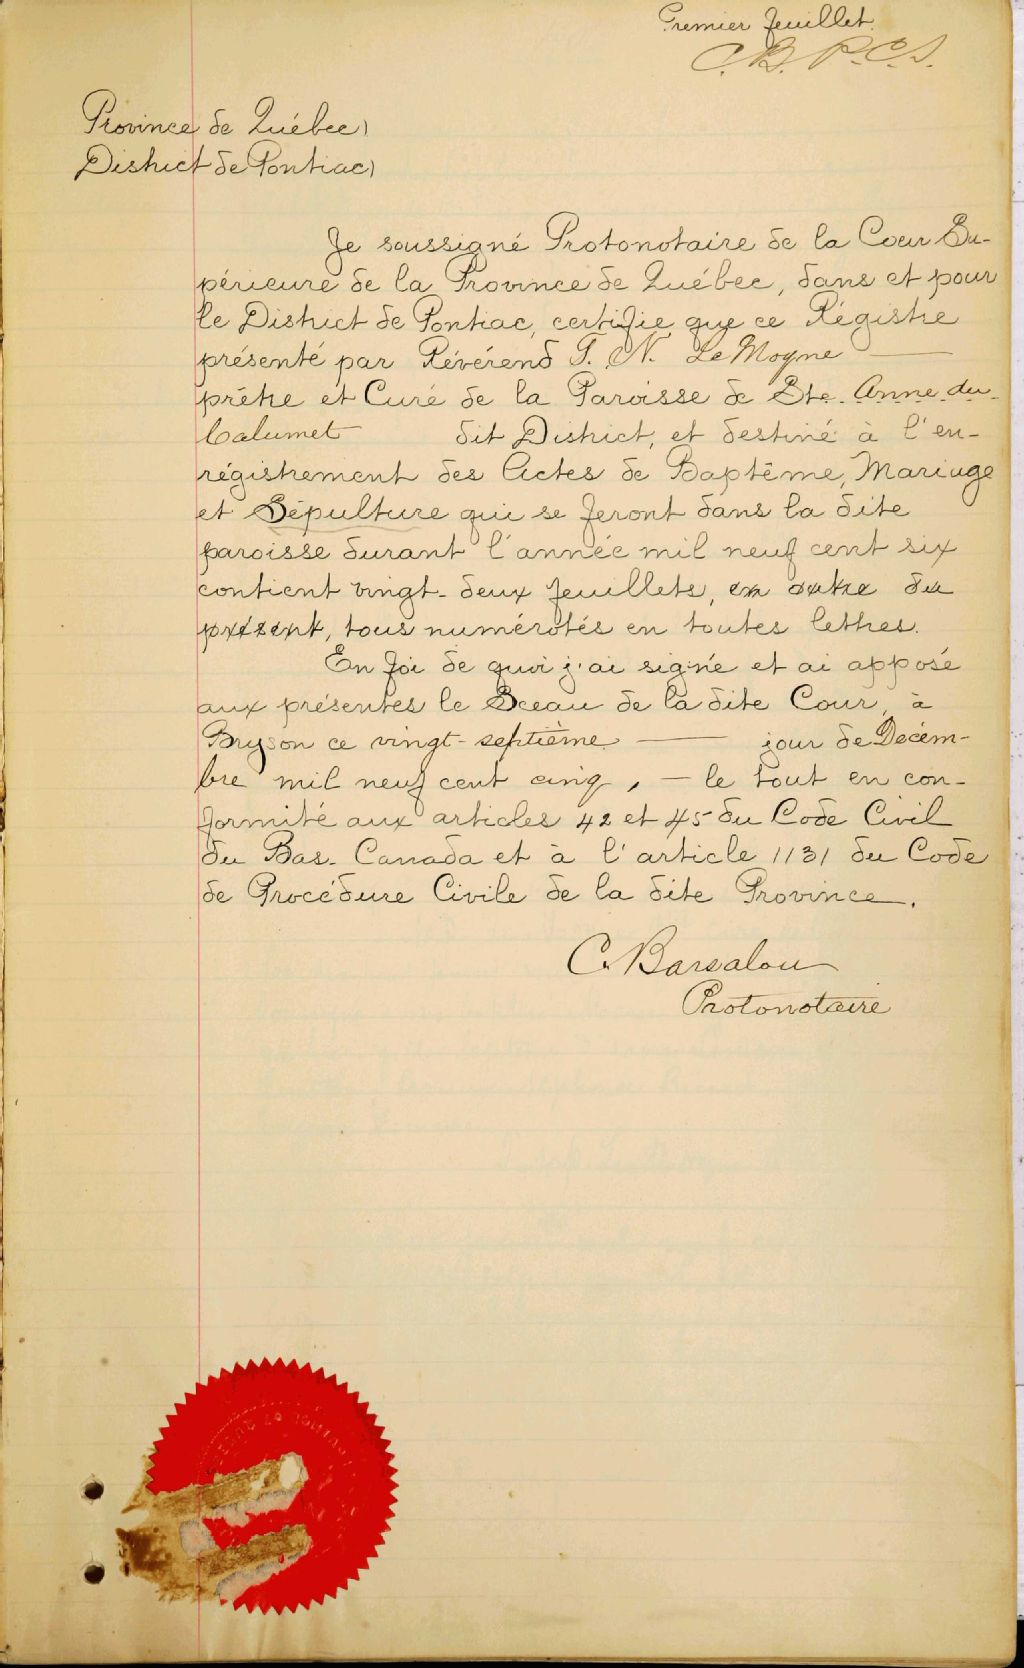 Premier feuillet.
C. B. P. C. S.
Province de Québec)
District de Pontiac)
Je soussigné Protonotaire de la Cour Su-
périeure de la Province de Québec, dans et pour
le District de Pontiac, certifie que ce Régistre
présenté par Révérend J. N. LeMoyne —
prêtre et Curé de la Paroisse de Ste. Anne du
Calumet dit District, et destiné à l'en-
régistrement des Actes de Baptême, Mariage
et Sépulture qui se feront dans la dite
paroisse durant l'année mil neuf cent six
contient vingt-deux feuillets, en outre du
présent, tous numérotés en toutes lettres.
En foi de quoi j'ai signé et ai apposé
aux présentes le Sceau de la dite Cour, à
Bryson ce vingt-septième — jour de Décem-
bre mil neuf cent cinq, — le tout en con-
formité aux articles 42 et 45 du Code Civil
du Bas-Canada et à l'article 1131 du Code
de Procédure Civile de la dite Province.
C. Barsalou
Protonotaire